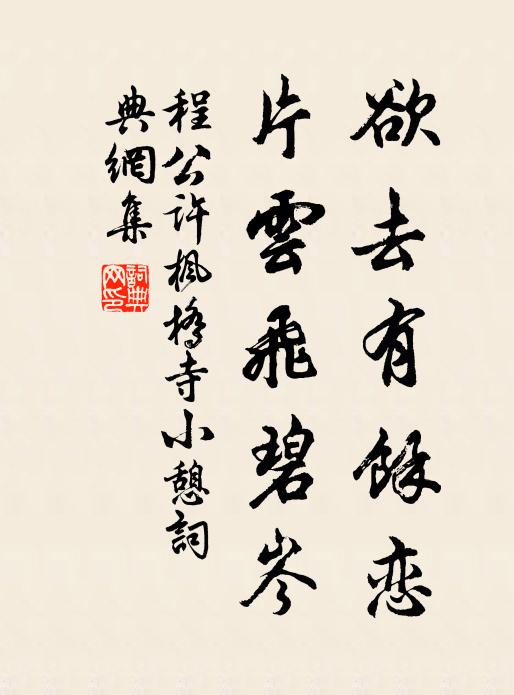 欲去有餘恋
片雲飛碧岑
程公许枫橋寺小憩詞
典網集
詞典網印